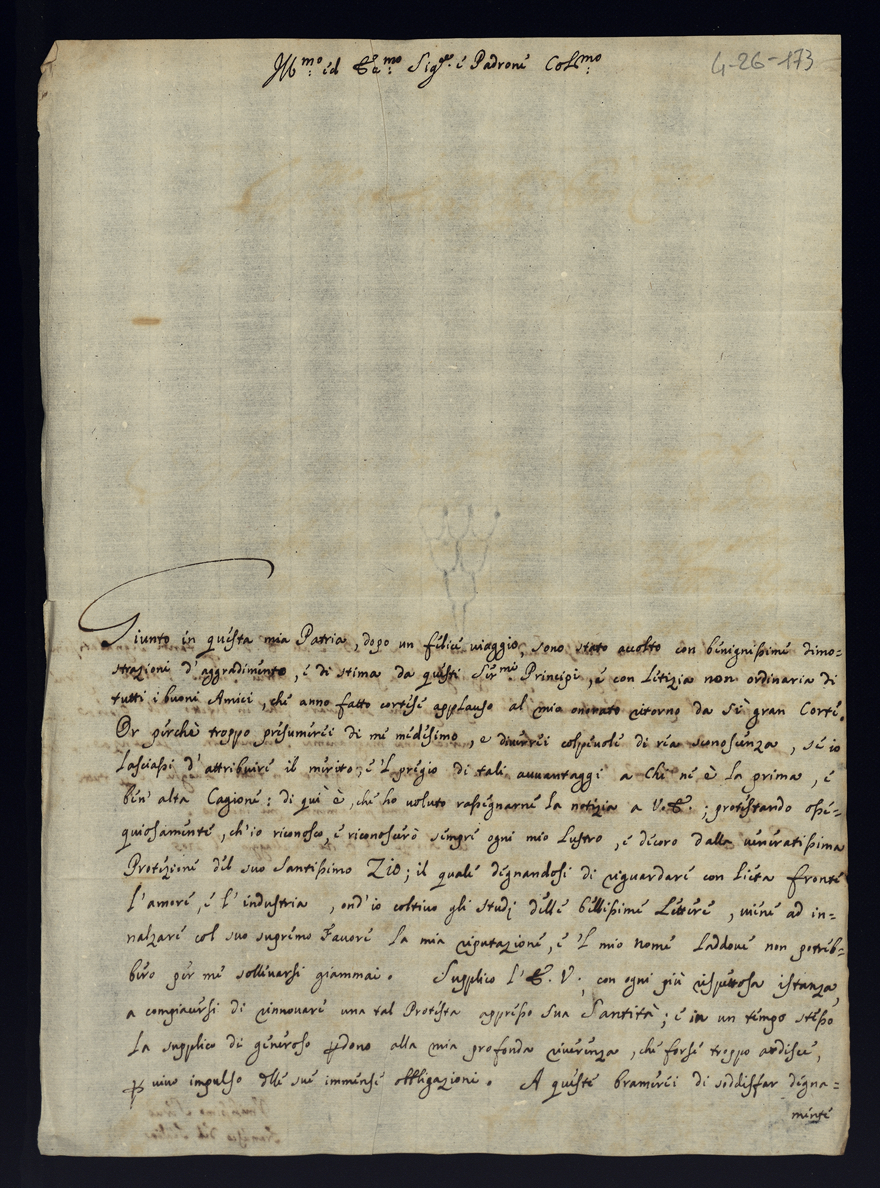 Ill.mo ed Ecc.mo Sig.re e Padrone Col.mo
4-26-173
Giunto in questa mia Patria, dopo un felice viaggio, sono stato accolto con benignissime dimo=
strazioni d'aggradimento, e di stima da questi Ser.mi Principi, e con letizia non ordinaria di
tutti i buoni Amici, che anno fatto cortese applauso al mio onorato ritorno da sì gran Corte.
Or perchè troppo presumerei di me medesimo, e diverrei colpevole di rea sconoscenza, se io
lasciassi d'attribuire il merito, e 'l pregio di tali avvantaggi a chi ne è la prima, e
ben' alta Cagione: di qui è, che ho voluto rassegnarne la notizia a V. E.; protestando osse=
quiosamente, ch'io riconosco, e riconoscerò sempre ogni mio lustro, e decoro dalla veneratissima
Protezione del suo Santissimo Zio; il quale degnandosi di riguardare con lieta fronte
l'amore, e l'industria, ond'io coltivo gli studj delle bellissime Lettere, viene ad in=
nalzare col suo supremo Favore la mia riputazione, e 'l mio nome laddove non potreb=
bero per me sollevarsi giammai. Supplico l'E. V. con ogni più rispettosa istanza
a compiacersi di rinnovare una tal Protesta appresso Sua Santità; e in un tempo stesso
la supplico di generoso perdono alla mia profonda riverenza, che forse troppo ardisce,
per vivo impulso delle sue immense obbligazioni. A queste bramerei di soddisfar degna=
mente